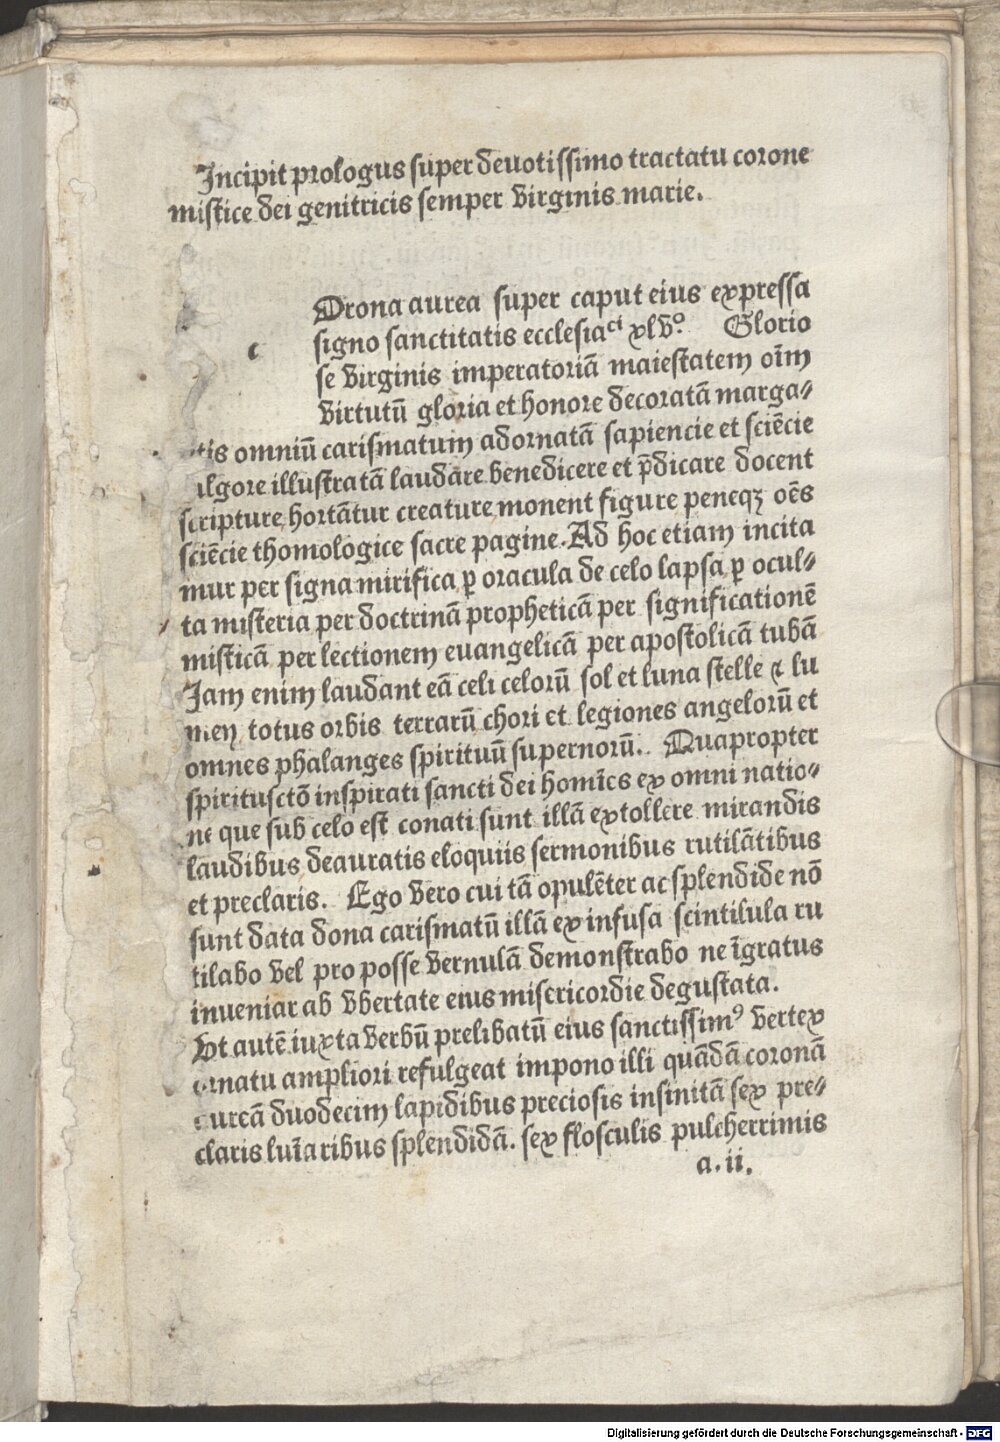 Incipit prologus super deuotissimo tractatu corone
mistice dei genitricis semper virginis marie.
c
Orona aurea super caput eius expressa
signo sanctitatis ecclesiaci xlvo. Glorio
se virginis imperatoriā maiestatem oīm
virtutū gloria et honore decoratā marga⸗
tis omniū carismatum adornatā sapiencie et sciēcie
ulgore illustratā laudare benedicere et p̄dicare docent
scripture hortātur creature monent figure peneqꝫ oēs
sciēcie thomologice sacre pagine. Ad hoc etiam incita
mur per signa mirifica ꝑ oracula de celo lapsa ꝑ ocul⸗
ta misteria per doctrinā propheticā per significationē
misticā per lectionem euangelicā per apostolicā tubā
Jam enim laudant eā celi celorū sol et luna stelle ⁊ lu
men totus orbis terrarū chori et legiones angelorū et
omnes phalanges spirituū supernorū. Quapropter
spiritusctō inspirati sancti dei homīes ex omni natio⸗
ne que sub celo est conati sunt illā extollere mirandis
laudibus deauratis eloquiis sermonibus rutilātibus
et preclaris. Ego vero cui tā opulēter ac splendide nō
sunt data dona carismatū illā ex infusa scintilula ru
tilabo vel pro posse vernulā demonstrabo ne īgratus
inueniar ab vbertate eius misericordie degustata.
Vt autē iuxta verbū prelibatū eius sanctissimꝰ vertex
ornatu ampliori refulgeat impono illi quādā coronā
aureā duodecim lapidibus preciosis insinitā sex pre⸗
claris luīaribus splendidā. sex flosculis pulcherrimis
a.ii.
Digitalisierung gefördert durch die Deutsche Forschungsgemeinschaft - DFG